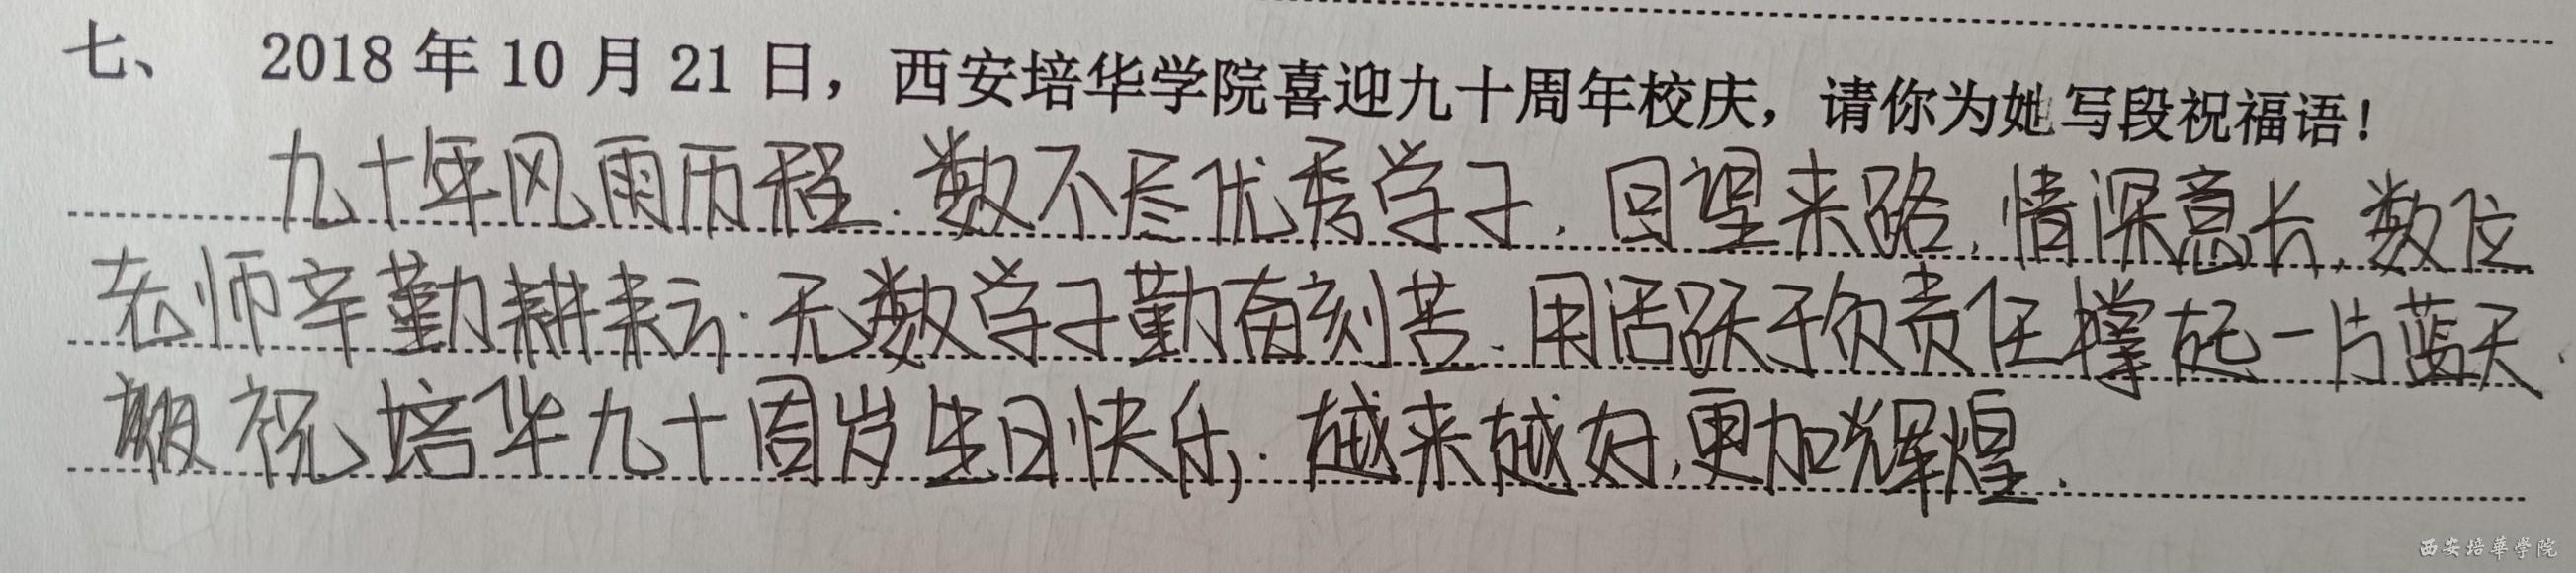 七、 2018 年 10 月 21 日，西安培华学院喜迎九十周年校庆，请你为她写段祝福语！
九十年风雨历程.数不尽优秀学子.回望来路,情深意长,数位
老师辛勤耕耘.无数学子勤奋刻苦.用活跃于负责任撑起一片蓝天.
祝培华九十周岁生日快乐,.越来越好,更加辉煌.
西安培華學院